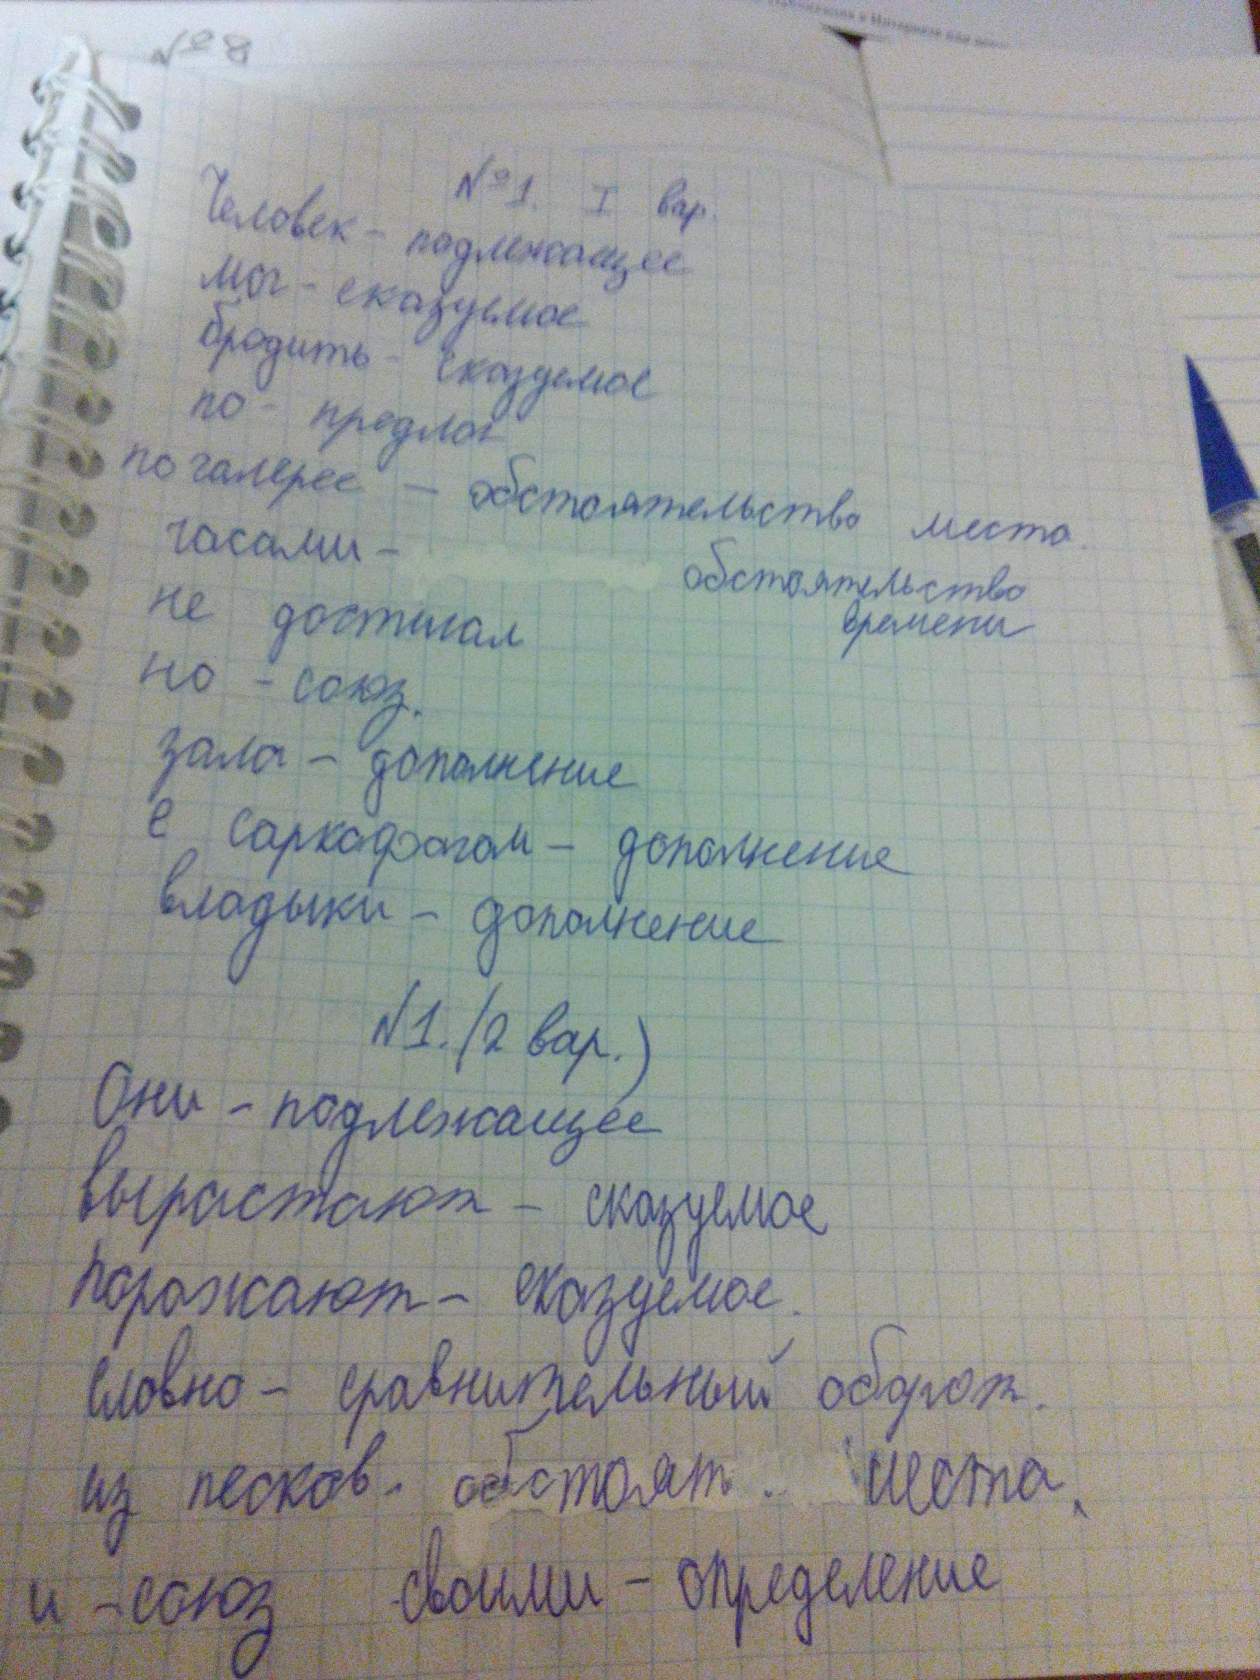 № 8
№1. I вар.
Человек - подлежащее
мог - сказуемое
бродить - сказуемое
по - предлог
по галерее - обстоятельство места.
часами - обстоятельство
времени
не достигал
но - союз.
зала - дополнение
с саркофагом - дополнение
владыки - дополнение
№1. (2 вар.)
Они - подлежащее
вырастают - сказуемое
поражают - сказуемое.
словно - сравнительный оборот.
из песков - обстоят. места.
и - союз своими - определение